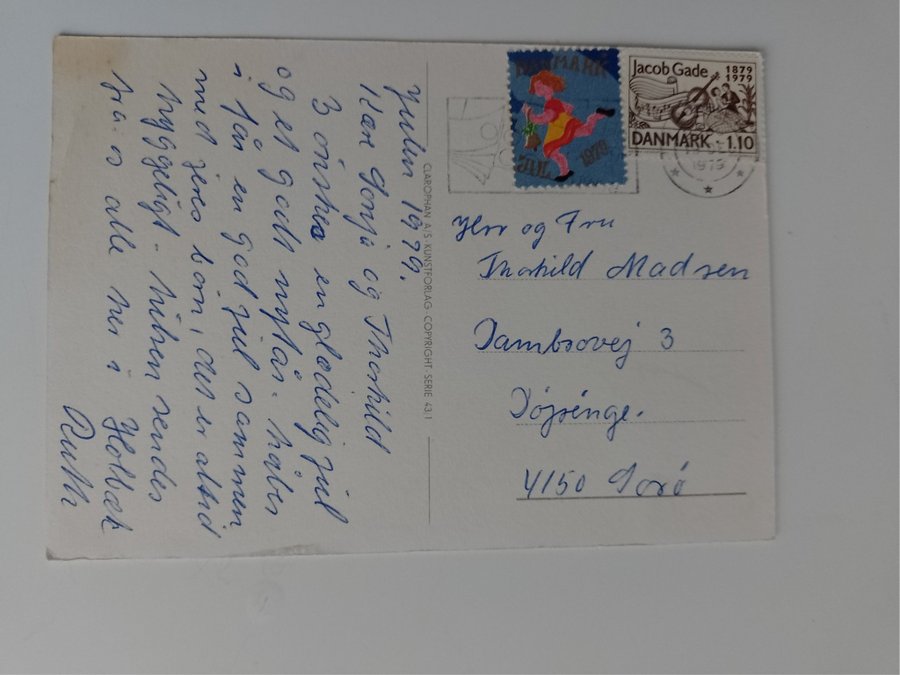 Julen 1979.
Kære Sonja og Thorkild
I ønskes en glædelig jul
og et godt nytår. håber
i får en god jul sammen
med jeres børn, det er altid
hyggeligt. hilsen sendes
fra os alle her i Holbæk
Ruth
CLAROPHAN A/S · KUNSTFORLAG · COPYRIGHT · SERIE 43.1
DANMARK
JUL 1979
Jacob Gade 1879
1979
DANMARK 1.10
1979
Herr og Fru
Thorkild Madsen
Dambrovej 3
4150 Sorø